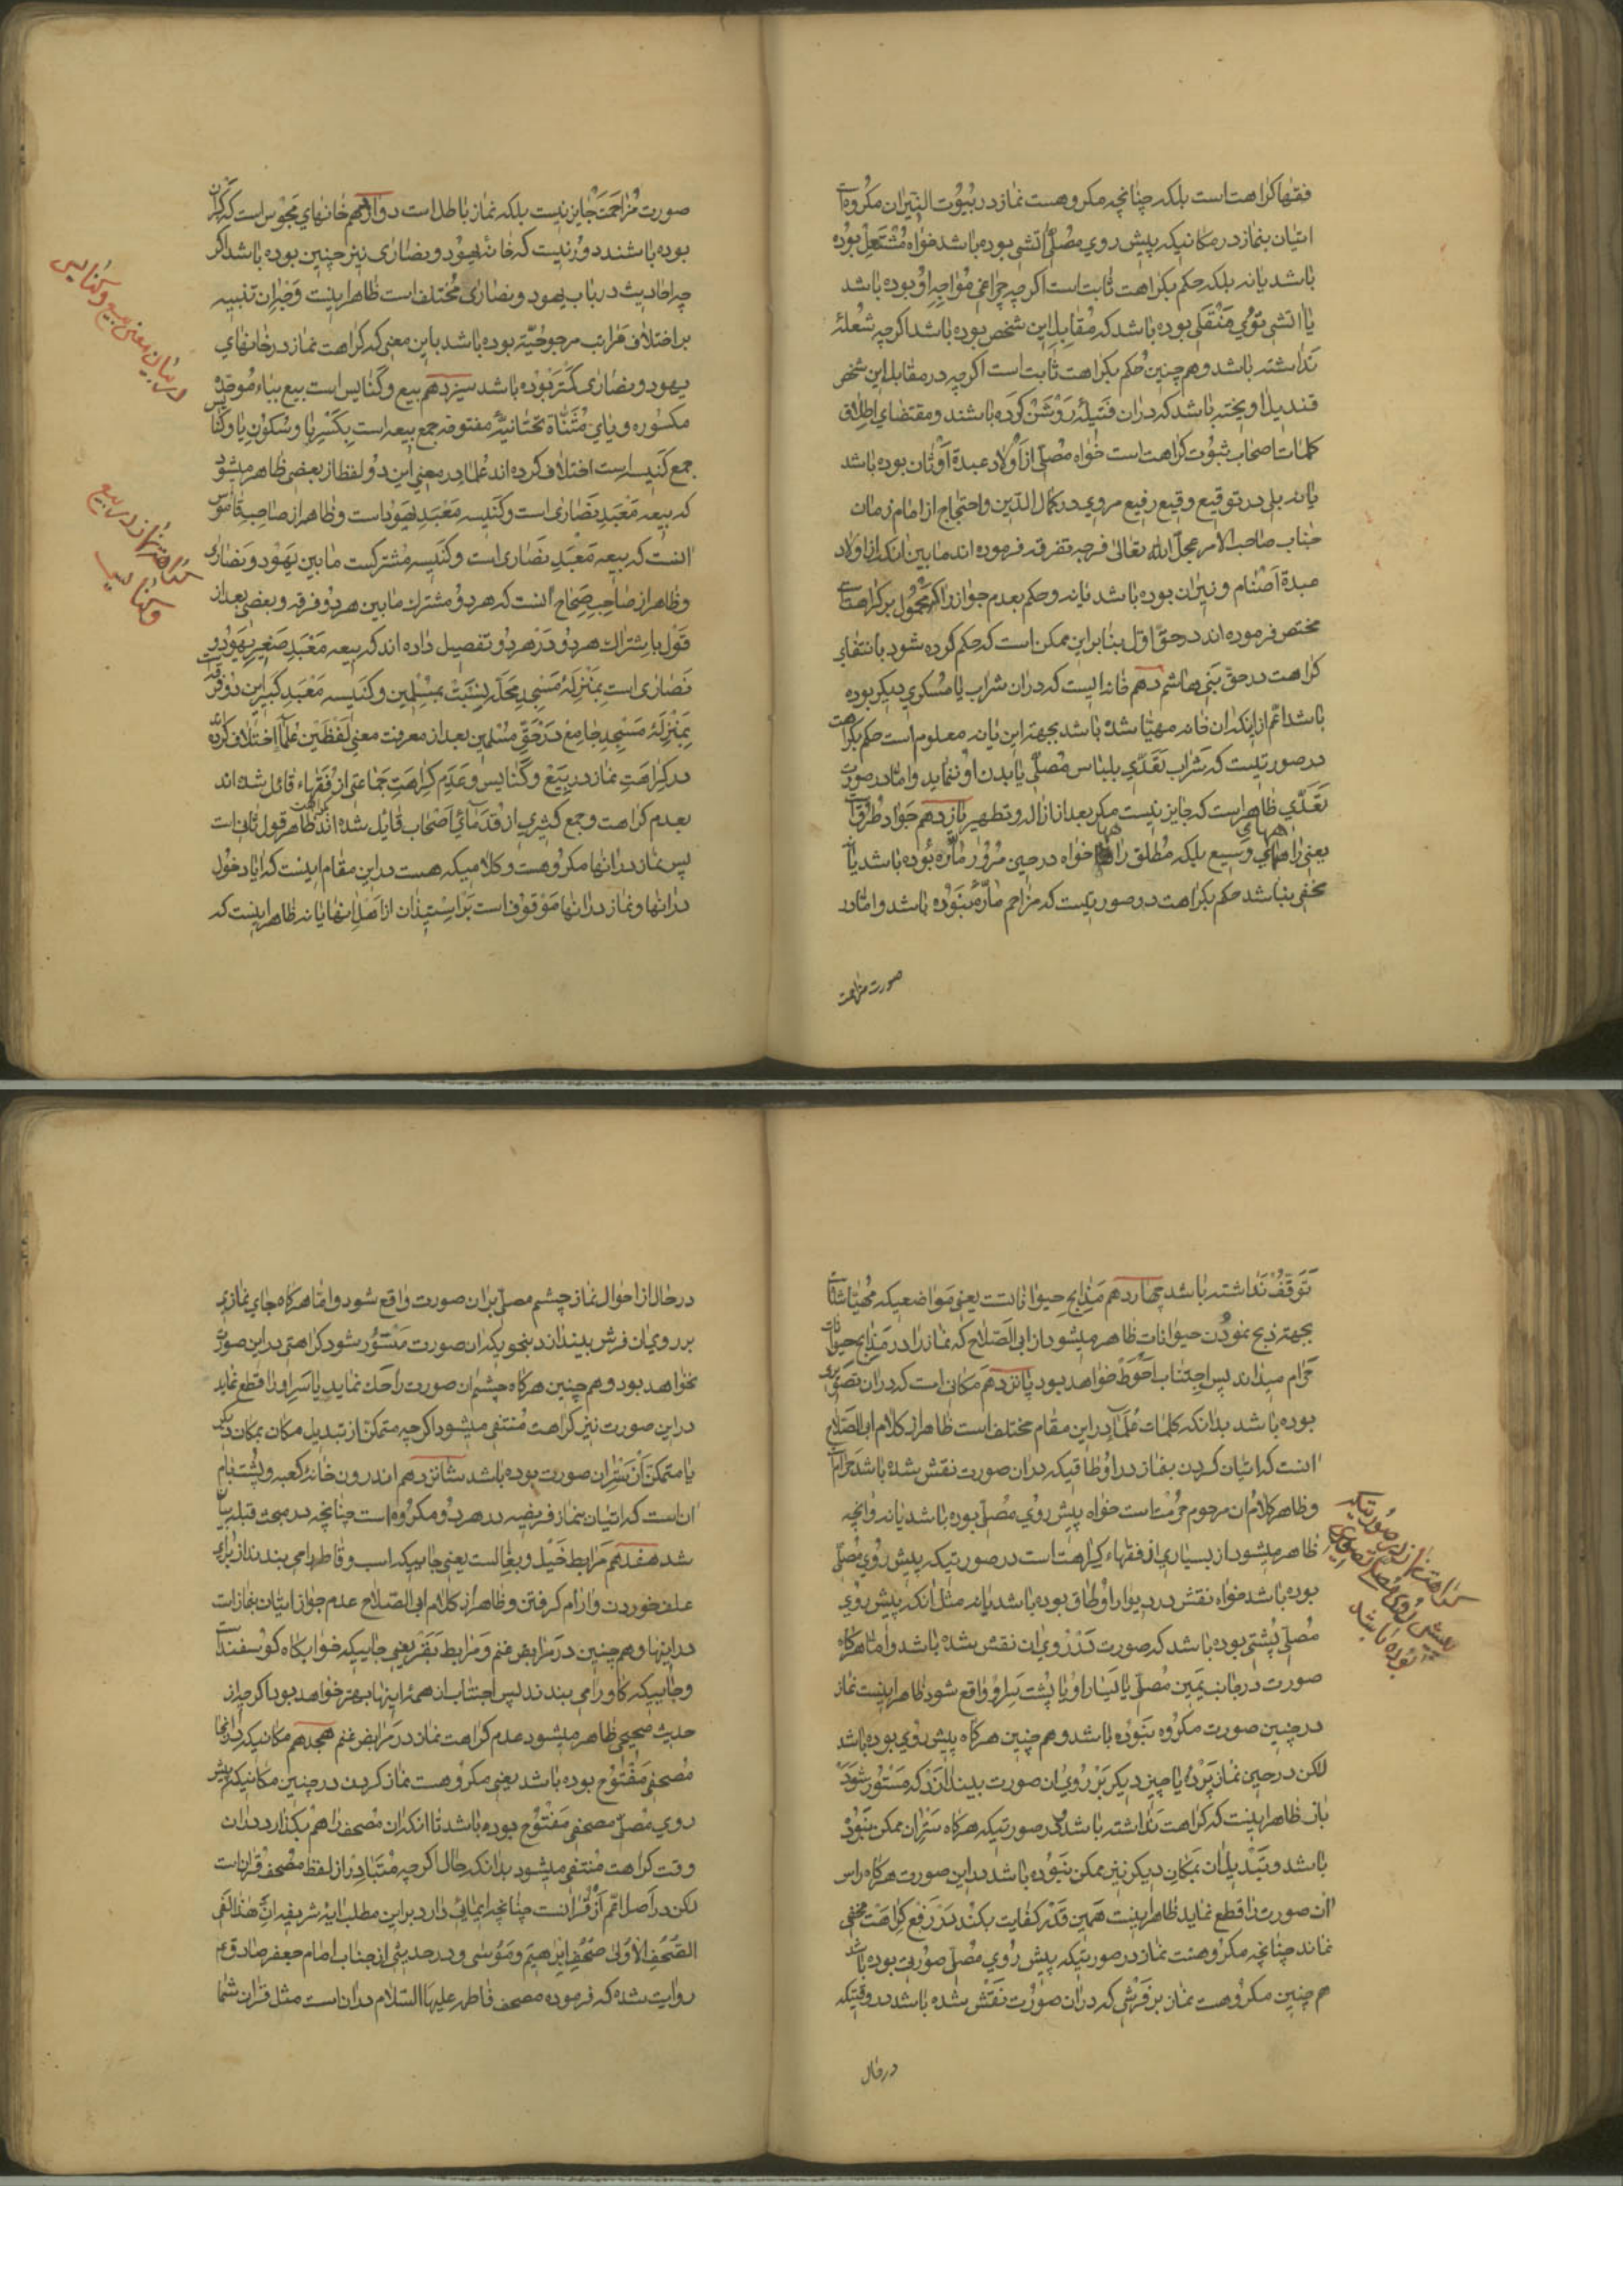 فقها کراهت است بلکه چنانچه مکروهست نماز در بُیُوت النیران مکروه است
اتیان بنماز در مکانیکه پیش روی مُصلّی اتشی بوده باشد خواه مُشتعِل بوده
باشد یا نه بلکه حکم بکراهت ثابت است اکرچه چراغی مُواجِهِ او بوده باشد
یا اتشی توی مَنْقَلی بوده باشد که مُقابِل این شخص بوده باشد اکرچه شُعلهٔ
نداشته باشد و هم چنین حُکم بکراهت ثابت است اکرچه در مقابل این شخص
قندیل اویخته باشد که دران فتیلهٔ رَوْشَنْ کرده باشند و مقتضای اطلاق
کلمات اصحاب ثبُوت کراهت است خواه مُصلّی از أولاد عبدة أوثان بوده باشد
یا نه بلی در توقیع وقیع رفیع مروی در کمال الدّین و احتجاج از امام زمان
جناب صاحب الامر عجل الله تعالی فرجه تفرقه فرموده اند ما بین انکه از اولاد
عبدة أصنام و نیران بوده باشد یا نه و حکم بعدم جواز را که محمُول بر کراهت است
مختص فرموده اند در حقّ اوّل بنا براین ممکن است که حکم کرده شود بانتفاء
کراهت در حق بَنی هاشم دهم خانه ایست که دران شراب یا مُسکری دیکر بوده
باشد اعم از اینکه ان خانه مهیّا شده باشد بجهة این یا نه معلوم است حکم بکراهت
در صورتیست که شراب تَعَدّی بلباس مُصلّی یا بدن او ننماید و امّا در صورت
تَعَدّی ظاهر است که جایز نیست مکر بعد از ازاله و تطهیر یازدهم جَوادّ طُرُق است
یعنی راههای وسیع بلکه مُطلق راهها خواه در حین مرُور مارّه بُوده باشد یا نه
مخفی نباشد حکم بکراهت در صورتیست که مزاحم مارّه نبوده باشد و امّا در
صورت مزاحمت
صورت مُزاحَمَت جایز نیست بلکه نماز باطل است دوازدهم خانهای مجوس است که کران
بوده باشند دور نیست که خانهٔ یهود و نصاری نیز چنین بوده باشد اکر
چه احادیث در باب یهود و نصاری مُختلف است ظاهر اینست وجه ان تنبیه
بر اختلاف مَراتب مرجوحیّة بوده باشد باین معنی که کراهت نماز در خانهای
یهود و نصاری کمتر بوده باشد سیزدهم بیع و کنایس است بیع بباء مُوحّده
مکسوره و یای مُثنّاة تحتانیّهٔ مفتوحه جمع بیعه است بکَسْرِ با و سکُونِ یا و کنایس
جمع کنیسه است اختلاف کرده اند عُلما در معنی این دو لفظ از بعضی ظاهر میشود
که بیعه مَعْبَدِ نصاری است و کنیسه مَعْبَدِ یهود است و ظاهر از صاحب قاموس
انست که بیعه مَعْبَدِ نصاری است و کنیسه مشترکست ما بین یهود و نصاری
و ظاهر از صاحب صِحاح انست که هر دو مشترک ما بین هر دو فرقه و بعضی بعد از
قول باشتراک هر دو در هر دو تفصیل داده اند که بیعه مَعْبَدِ صغیر یهود و
نصاری است بمنزلهٔ مَسْجِدِ مَحَلّه بنسبت بمسلمین و کنیسه مَعْبَدِ کبیر این دو فرقه
بمنزلهٔ مسجد جامع در حَقّ مُسْلمین بعد از معرفت معنی لَفْظَیْن عُلما اختلاف کرده
در کراهت نماز در بیَع و کنایس و عدم کراهت جَماعتی از فُقَهاء قائل شده اند
بعدم کراهت و جمع کثیری از قدمای أصحاب قایل شده اند بکراهت ظاهر قول ثانی است
پس نماز در انها مکروهست و کلامیکه هست در این مقام اینست که ایا دخول
در انها و نماز در انها مَوقوف است بر استیذان از اهل انها یا نه ظاهر اینست که
در بیان معنی بیع و کنایس
کراهت نماز در بیع
و کنایس
توقّف نداشته باشد چهاردهم مَذابح حیوانات است یعنی مواضعیکه مهیّا شده است
بجهة ذبح نمودن حیوانات ظاهر میشود از ابی الصّلاح که نماز را در مذابح حیوانات
حرام میداند پس اجتناب أحوط خواهد بود پانزدهم مکانی است که دران تصویری
بوده باشد بدانکه کلمات عُلما در این مقام مختلف است ظاهر از کلام ابی الصّلاح
انست که اتیان کردن بنماز در اوطاقیکه دران صورت نقش شده باشد حرام است
و ظاهر کلام ان مرحوم حُرمت است خواه پیش روی مُصلّی بوده باشد یا نه و انچه
ظاهر میشود از بسیاری از فقهاء کراهت است در صورتیکه پیش روی مُصلّی
بوده باشد خواه نقش در دیوار اوطاق بوده باشد یا نه مثل انکه پیش روی
مُصلّی پُشتی بوده باشد که صورت در روی ان نقش شده باشد و امّا هرکاه
صورت در جانب یمین مُصلّی یا یسار او یا پُشت سَر او واقع شود ظاهر اینست نماز
در چنین صورت مکرُوه نبوده باشد و هم چنین هرکاه پیش روی بوده باشد
لکن در حین نماز پَرْدهٔ یا چیز دیکر بَرْ روی ان صورت بیندازند که مَستُور شود
باز ظاهر اینست که کراهت نداشته باشد و در صورتیکه هرکاه سَتْر ان ممکن نبود
باشد و تبدیل ان بمکان دیکر نیز ممکن نبوده باشد در این صورت هرکاه راس
ان صورت را قطع نماید ظاهر اینست همین قدر کفایت بکند در رَفع کراهت مخفی
نماند چنانچه مکروهست نماز در صورتیکه پیش روی مُصلّی صورتی بوده باشد
هم چنین مکروهست نماز بر فرشی که دران صورت نقش شده باشد در وقتیکه
در حال
کراهت نماز در صورتیکه
پیش روی مُصلّی تصویری
بوده باشد
در حال از احوال نماز چشم مصلّی بران صورت واقع شود و امّا هرکاه جای نمازی
بر روی ان فرش بیندازد بنحویکه ان صورت مستُور شود کراهتی در این صورت
نخواهد بود و هم چنین هرکاه چشم ان صورت را حک نماید یا سر او را قطع نماید
در این صورت نیز کراهت مُنتفی میشود اکرچه متمکن از تبدیل مکان بمکان دیکر
یا متمکن از سَتْر ان صورت بوده باشد شانزدهم اندرون خانهٔ کعبه و پشت بام
ان است که اتیان بنماز فریضه در هر دو مکرُوه است چنانچه در مبحث قبله بیان
شد هفدهم مَرابط خَیْل و بغال است یعنی جاییکه اسب و قاطر را می بندند از برای
علف خوردن و ارام کرفتن و ظاهر از کلام ابی الصّلاح عدم جواز اتیان بنماز است
در اینها و هم چنین در مَرابض غنم و مَرابط بَقَر یعنی جاییکه خوابکاه کوسفند است
و جاییکه کاو را می بندند پس اجتناب از همهٔ اینها بهتر خواهد بود اکرچه از
حدیث صحیحی ظاهر میشود عدم کراهت نماز در مَرابض غنم هجدهم مکانیکه در انجا
مُصحفی مَفْتُوح بوده باشد یعنی مکروهست نماز کردن در چنین مکانیکه پیش
روی مُصلّی مصحفی مَفْتُوح بوده باشد تا انکه ان مُصحف را هم بکذارد دران
وقت کراهت مُنتفی میشود بدانکه حال اکرچه مُتَبادِر از لفظ مُصْحف قران است
لکن در اَصل اعمّ از قُران است چنانچه ایمائی دارد بر این مطلب ایهٔ شریفهٔ انّ هٰذا لفی
الصُّحُفِ الأولی صُحُفِ إبرٰهیم و مُوسٰی و در حدیثی از جناب امام جعفر صادق ع
روایت شده که فرموده مصحف فاطمه علیها السّلام دران است مثل قران شما